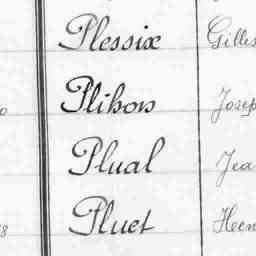 Plessix Gilles
Plihon Josep
Plual Jea
Pluet Hen